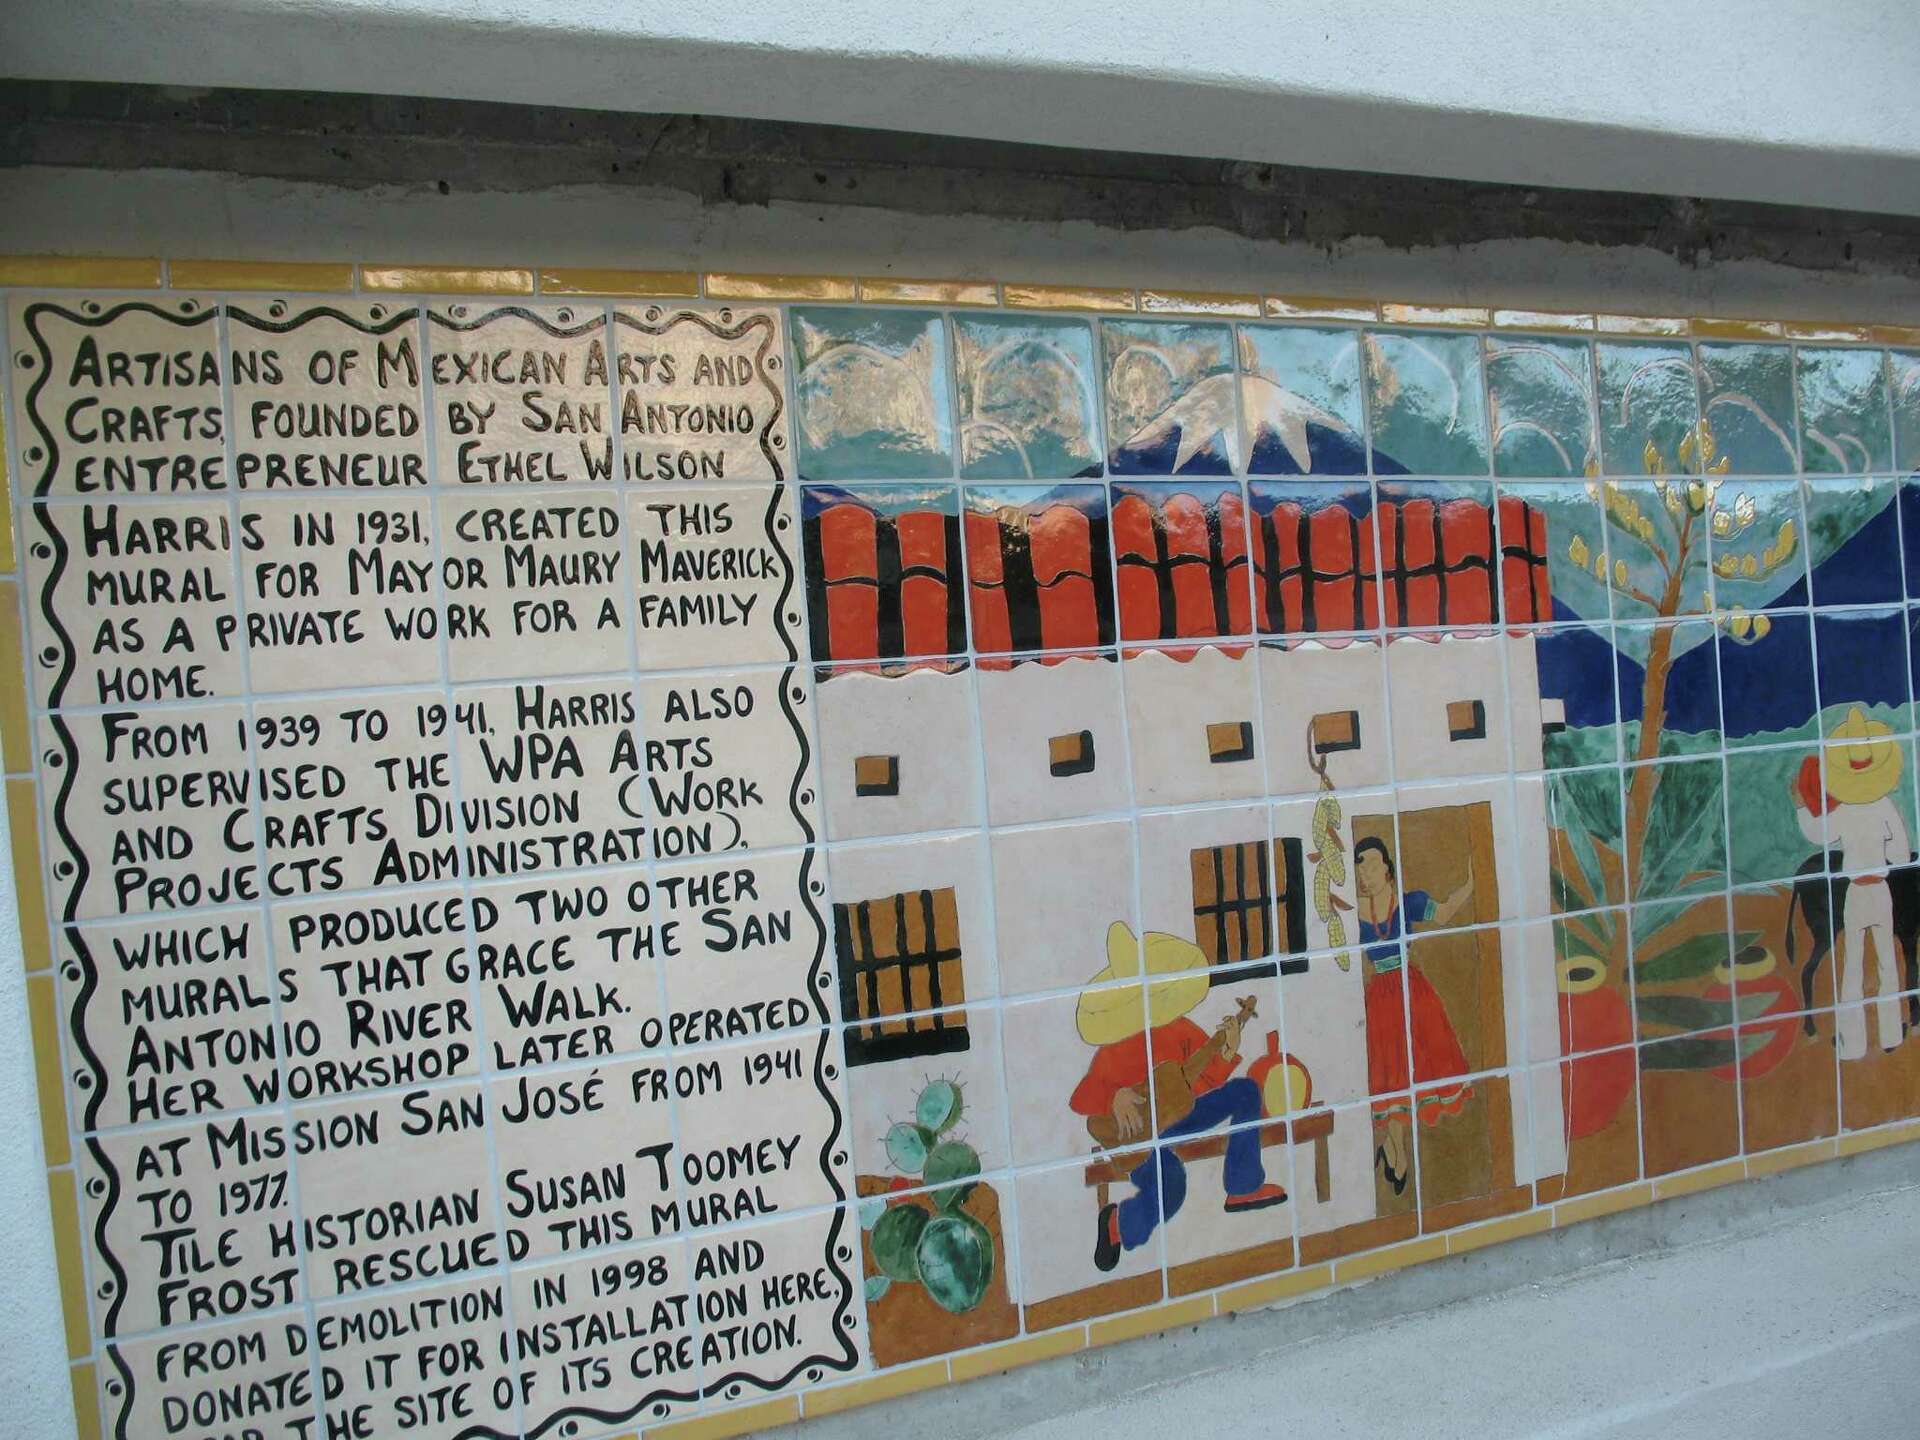 ARTISANS OF MEXICAN ARTS AND
CRAFTS, FOUNDED BY SAN ANTONIO
ENTREPRENEUR ETHEL WILSON
HARRIS IN 1931, CREATED THIS
MURAL FOR MAYOR MAURY MAVERICK
AS A PRIVATE WORK FOR A FAMILY
HOME.
FROM 1939 TO 1941, HARRIS ALSO
SUPERVISED THE WPA ARTS
AND CRAFTS DIVISION (WORK
PROJECTS ADMINISTRATION),
WHICH PRODUCED TWO OTHER
MURALS THAT GRACE THE SAN
ANTONIO RIVER WALK.
HER WORKSHOP LATER OPERATED
AT MISSION SAN JOSÉ FROM 1941
TO 1977.
TILE HISTORIAN SUSAN TOOMEY
FROST RESCUED THIS MURAL
FROM DEMOLITION IN 1998 AND
DONATED IT FOR INSTALLATION HERE,
THE SITE OF ITS CREATION.